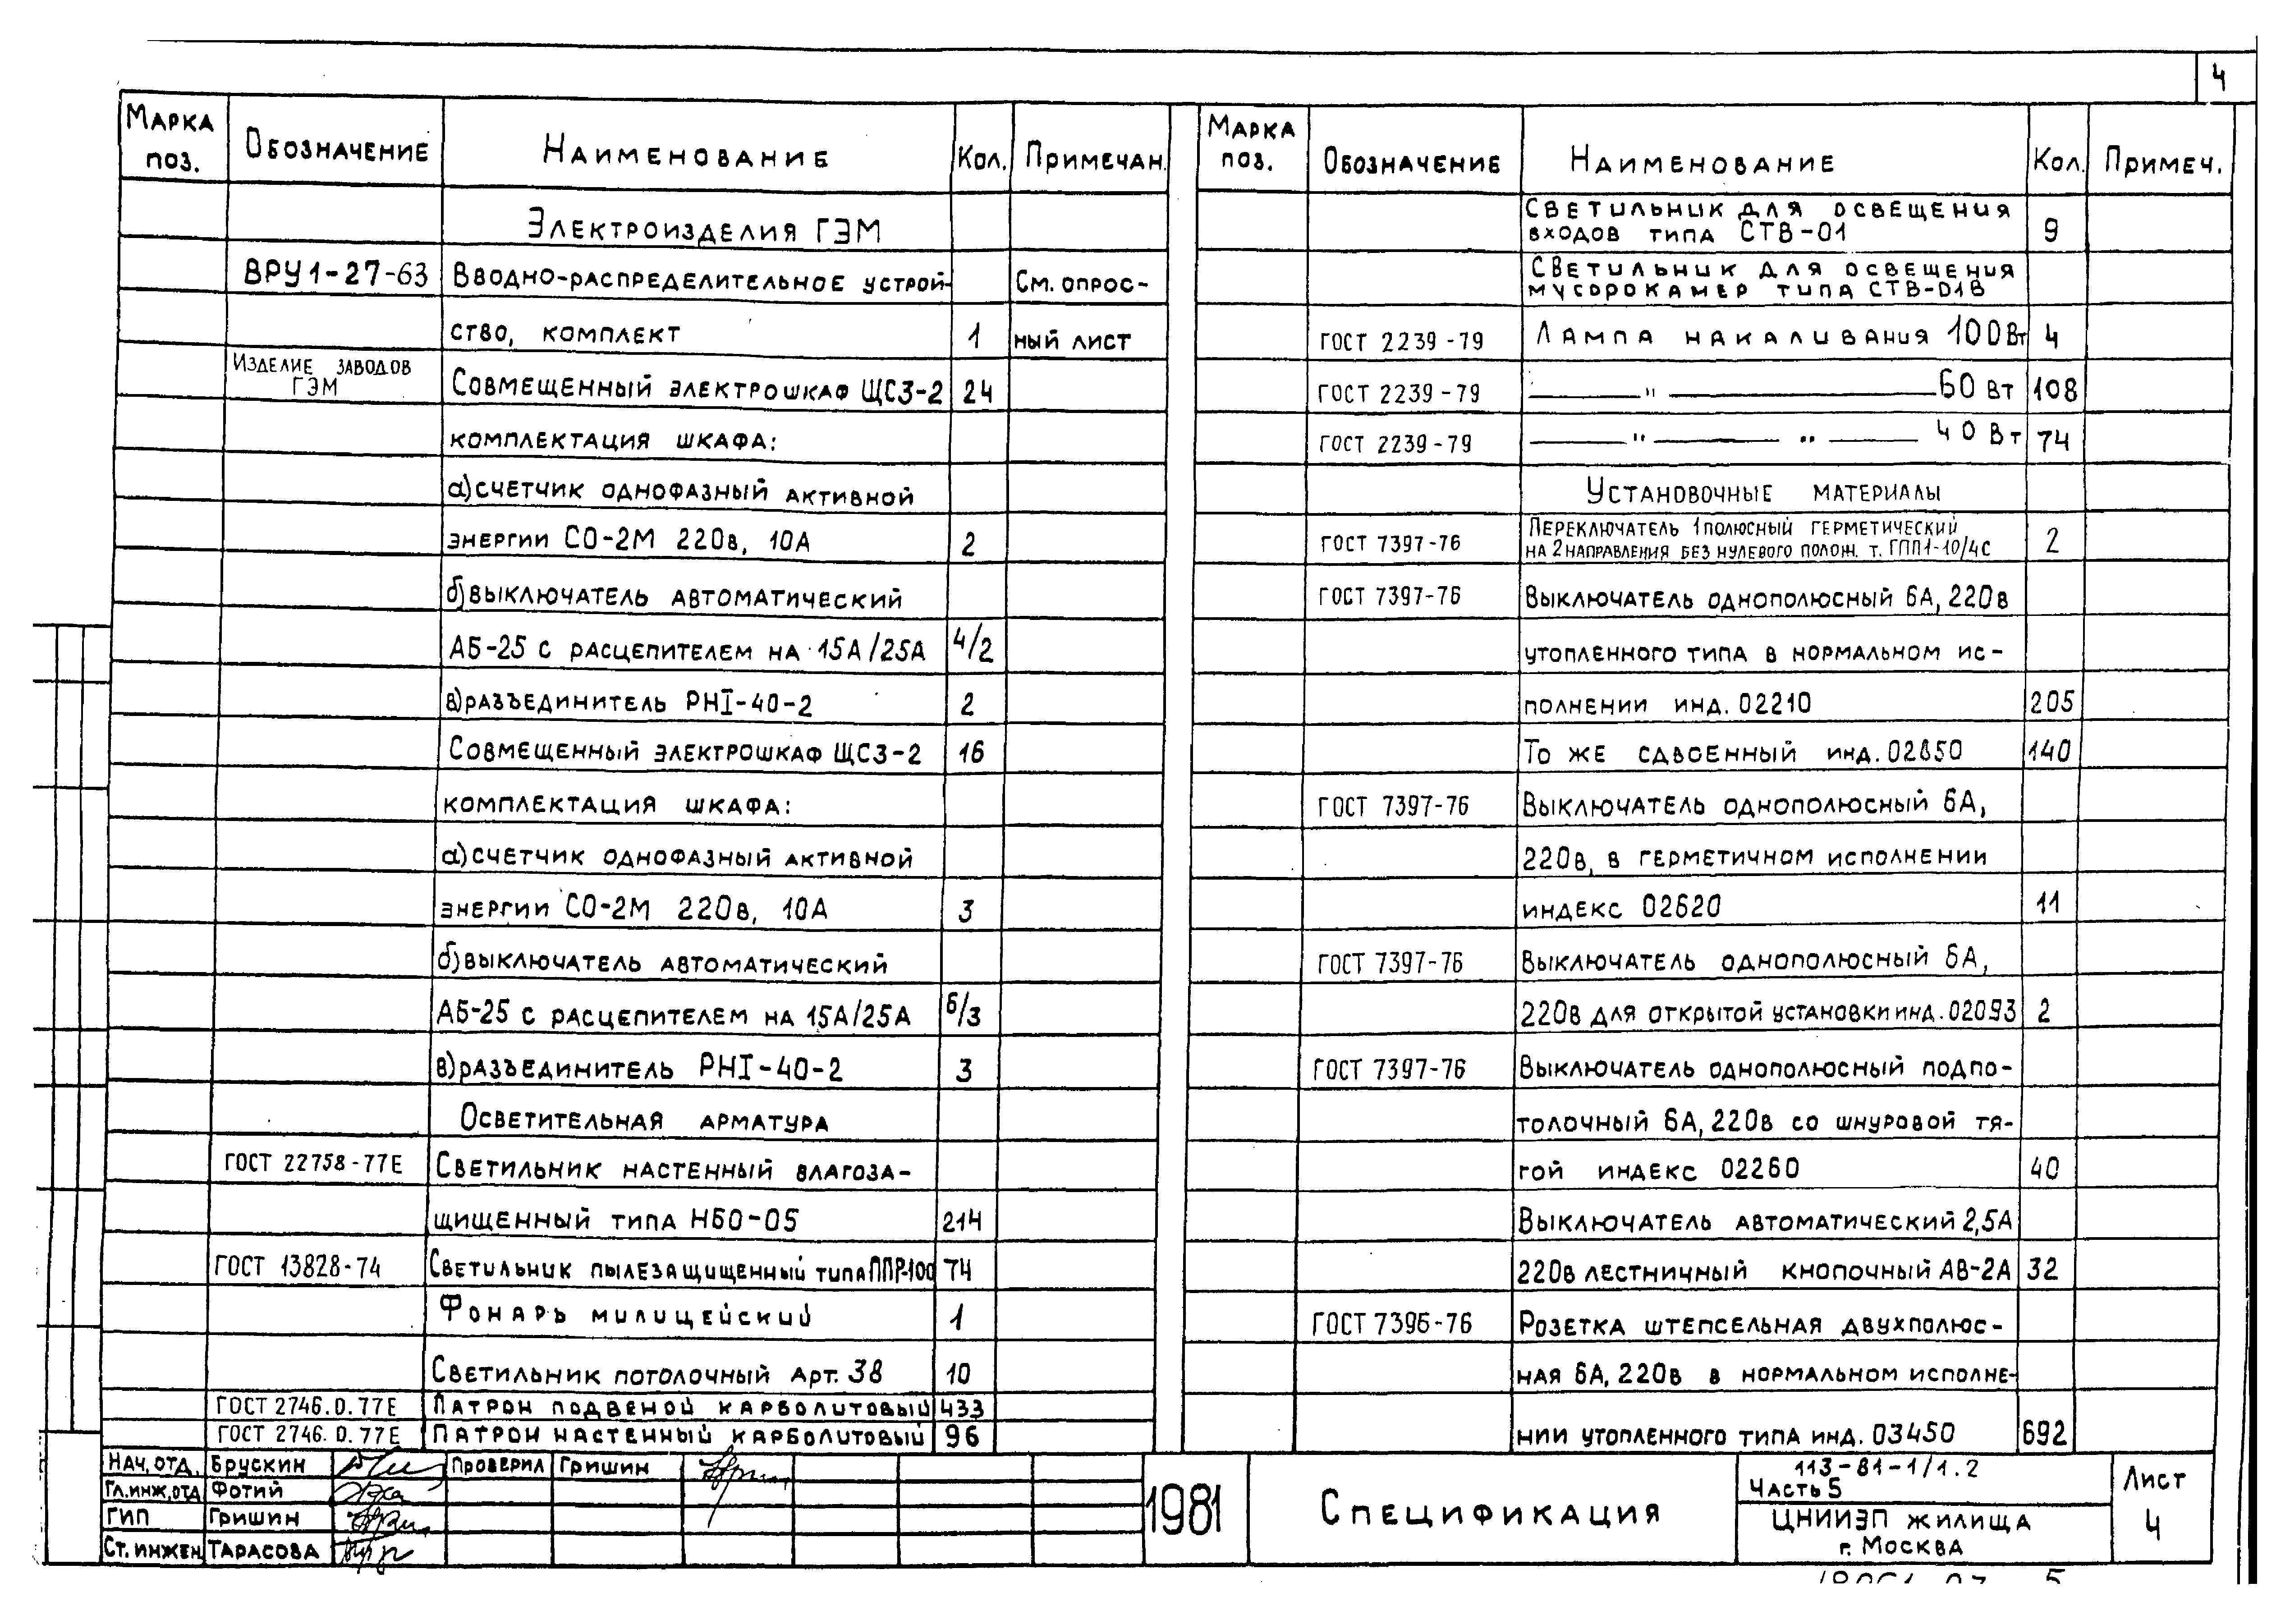 4
Марка поз. Обозначение Наименование Кол. Примечан.
Электроизделия ГЭМ
ВРУ1-27-63 Вводно-распределительное устрой- См. опрос-
ство, комплект 1 ный лист
Изделие заводов ГЭМ Совмещенный электрошкаф ЩС3-2 24
комплектация шкафа:
а) счетчик однофазный активной
энергии СО-2М 220в, 10А 2
б) выключатель автоматический
АБ-25 с расцепителем на 15А/25А 4/2
в) разъединитель РНI-40-2 2
Совмещенный электрошкаф ЩС3-2 16
комплектация шкафа:
а) счетчик однофазный активной
энергии СО-2М 220в, 10А 3
б) выключатель автоматический
АБ-25 с расцепителем на 15А/25А 6/3
в) разъединитель РНI-40-2 3
Осветительная арматура
ГОСТ 22758-77Е Светильник настенный влагоза-
щищенный типа НБО-05 214
ГОСТ 13828-74 Светильник пылезащищенный типа ППР-100 74
Фонарь милицейский 1
Светильник потолочный Арт. 38 10
ГОСТ 2746.0.77Е Патрон подвеной карболитовый 433
ГОСТ 2746.0.77Е Патрон настенный карболитовый 96
Марка поз. Обозначение Наименование Кол. Примеч.
Светильник для освещения
входов типа СТВ-01 9
Светильник для освещения
мусорокамер типа СТВ-01В
ГОСТ 2239-79 Лампа накаливания 100Вт 4
ГОСТ 2239-79 — " — 60 Вт 108
ГОСТ 2239-79 — " — " — 40 Вт 74
Установочные материалы
Переключатель 1полюсный герметический
ГОСТ 7397-76 на 2 направления без нулевого полож. т. ГПП1-10/4С 2
ГОСТ 7397-76 Выключатель однополюсный 6А, 220в
утопленного типа в нормальном ис-
полнении инд. 02210 205
То же сдвоенный инд. 02850 140
ГОСТ 7397-76 Выключатель однополюсный 6А,
220в, в герметичном исполнении
индекс 02620 11
ГОСТ 7397-76 Выключатель однополюсный 6А,
220в для открытой установки инд. 02093 2
ГОСТ 7397-76 Выключатель однополюсный подпо-
толочный 6А, 220в со шнуровой тя-
гой индекс 02260 40
Выключатель автоматический 2,5А
220в лестничный кнопочный АВ-2А 32
ГОСТ 7396-76 Розетка штепсельная двухполюс-
ная 6А, 220в в нормальном исполне-
нии утопленного типа инд. 03450 692
Нач. отд. Брускин Проверил Гришин
Гл. инж. отд Фотий
ГИП Гришин
Ст. инжен. Тарасова
1981
Спецификация
113-81-1/1.2
Часть 5
ЦНИИЭП жилища
г. Москва
Лист
4